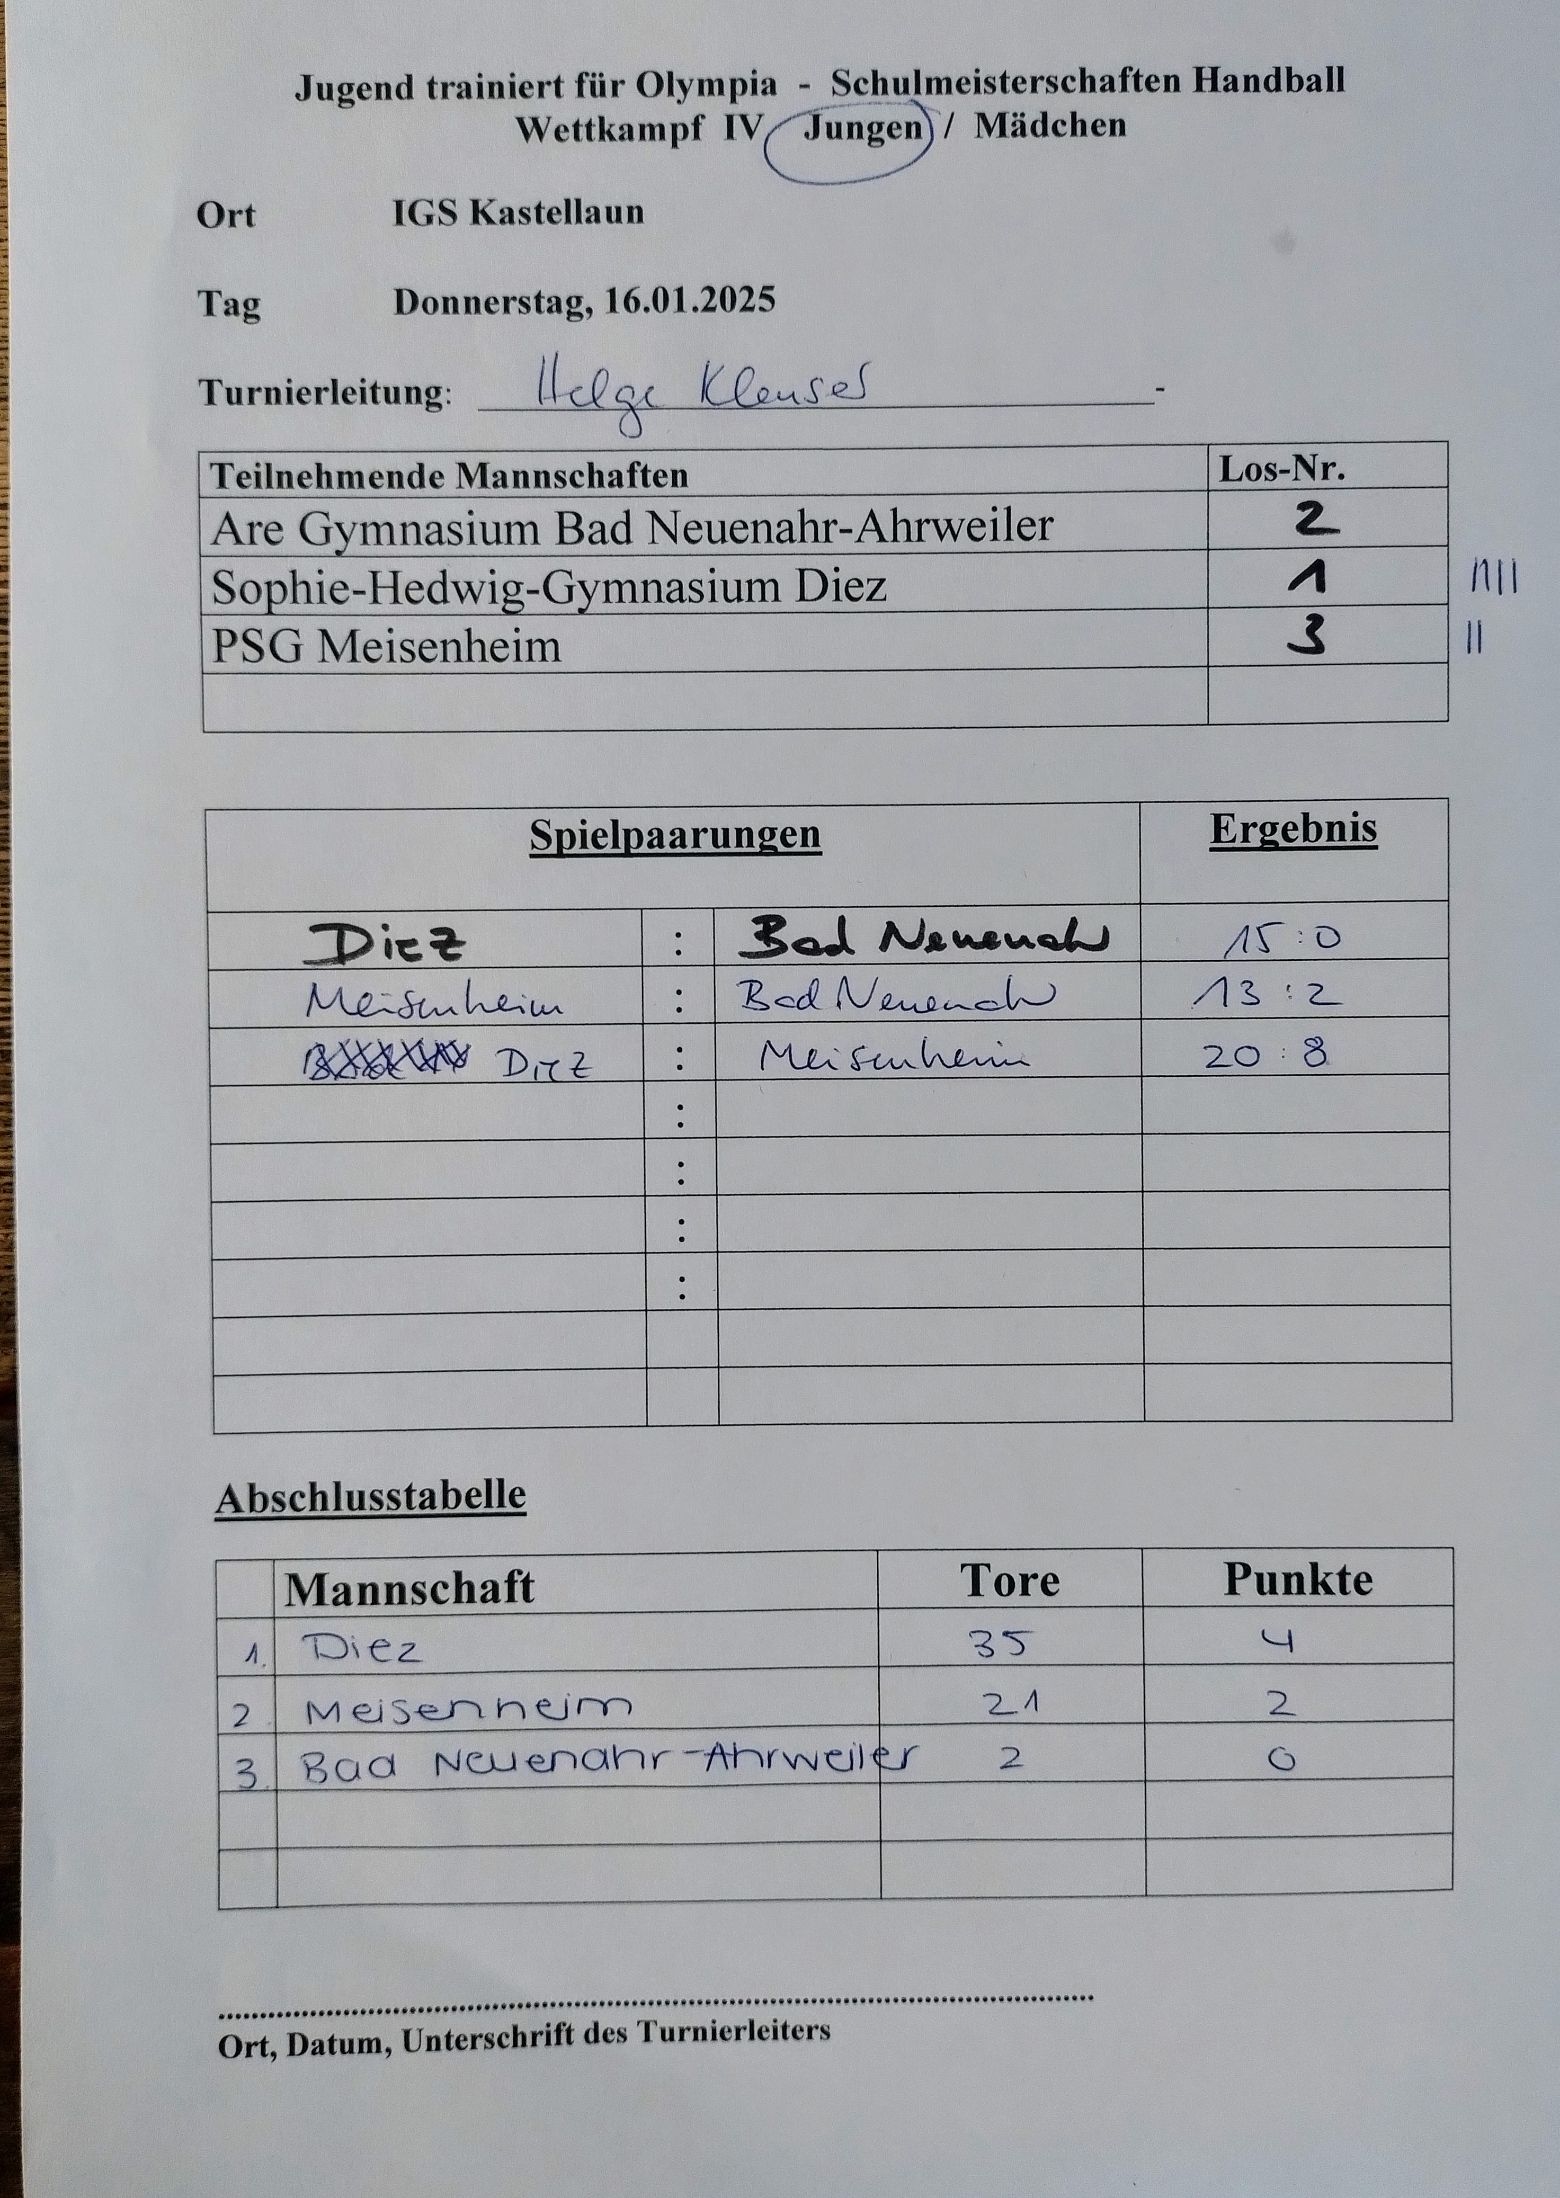 Jugend trainiert für Olympia - Schulmeisterschaften Handball
Wettkampf IV Jungen / Mädchen
Ort IGS Kastellaun
Tag Donnerstag, 16.01.2025
Turnierleitung: Helge -
Teilnehmende Mannschaften Los-Nr.
Are Gymnasium Bad Neuenahr-Ahrweiler 2
Sophie-Hedwig-Gymnasium Diez 1
PSG Meisenheim 3 ||
Spielpaarungen Ergebnis
Diez : Bad Neuenahr 15:0
Meisenheim : Bad Neuenahr 13:2
Diez : Meisenheim 20:8
:
:
:
:
Abschlusstabelle
Mannschaft Tore Punkte
1. Diez 35 4
2 Meisenheim 21 2
3. Bad Neuenahr-Ahrweiler 2 0
Ort, Datum, Unterschrift des Turnierleiters